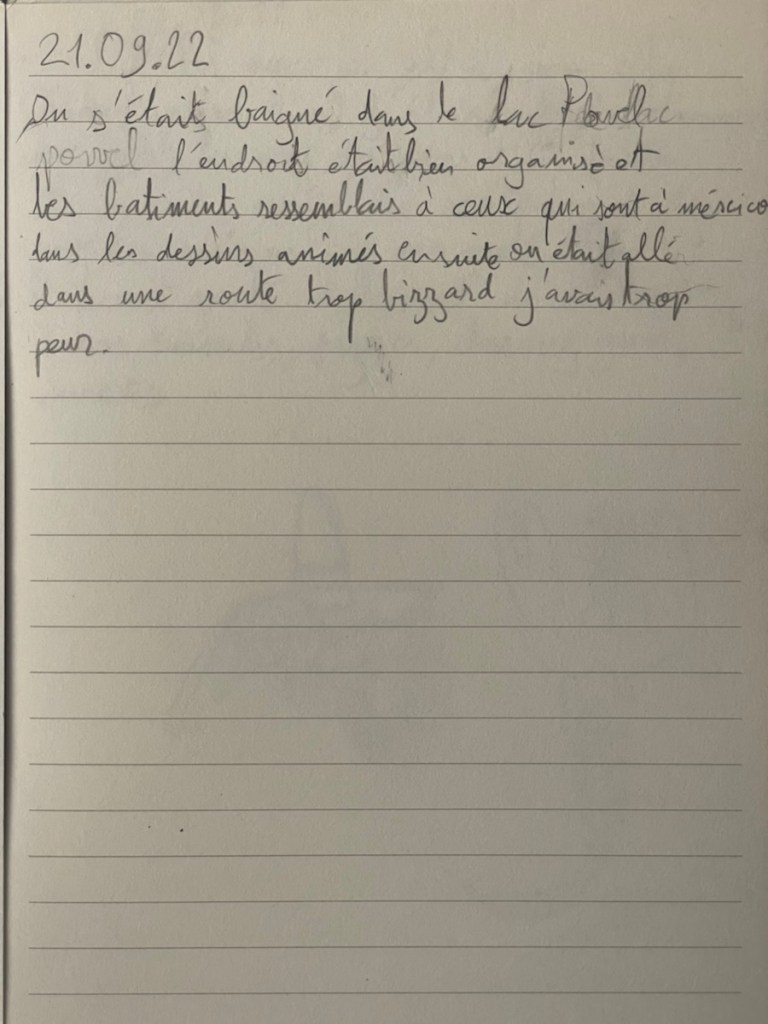 21.09.22
On s'était baigné dans le lac
l'endroit était bien organisé et
les batiments ressemblais à ceux qui sont à méxico
dans les dessins animés ensuite on était allé
dans une route trop bizzard j'avais trop
peur.